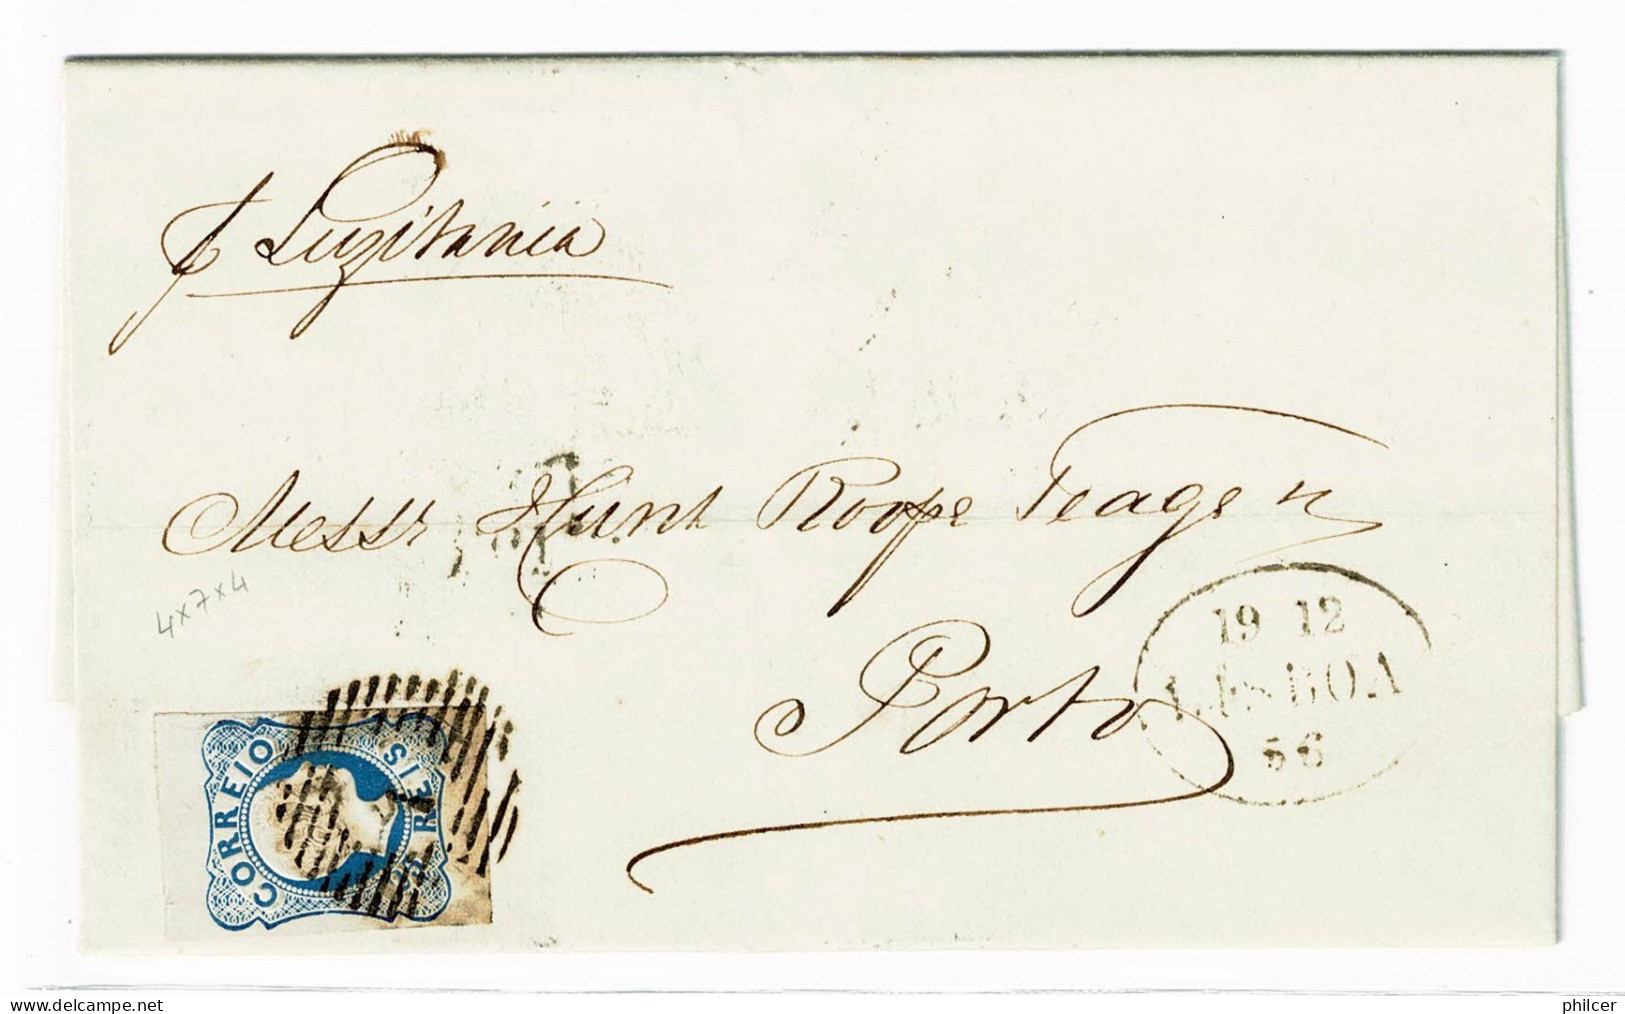 p Luzitania
Messrs Hunt Roope Teage n
Porto
4x7x4
19 12
LISBOA
56
CORREIO
25 REIS
1
www.delcampe.net
philcer